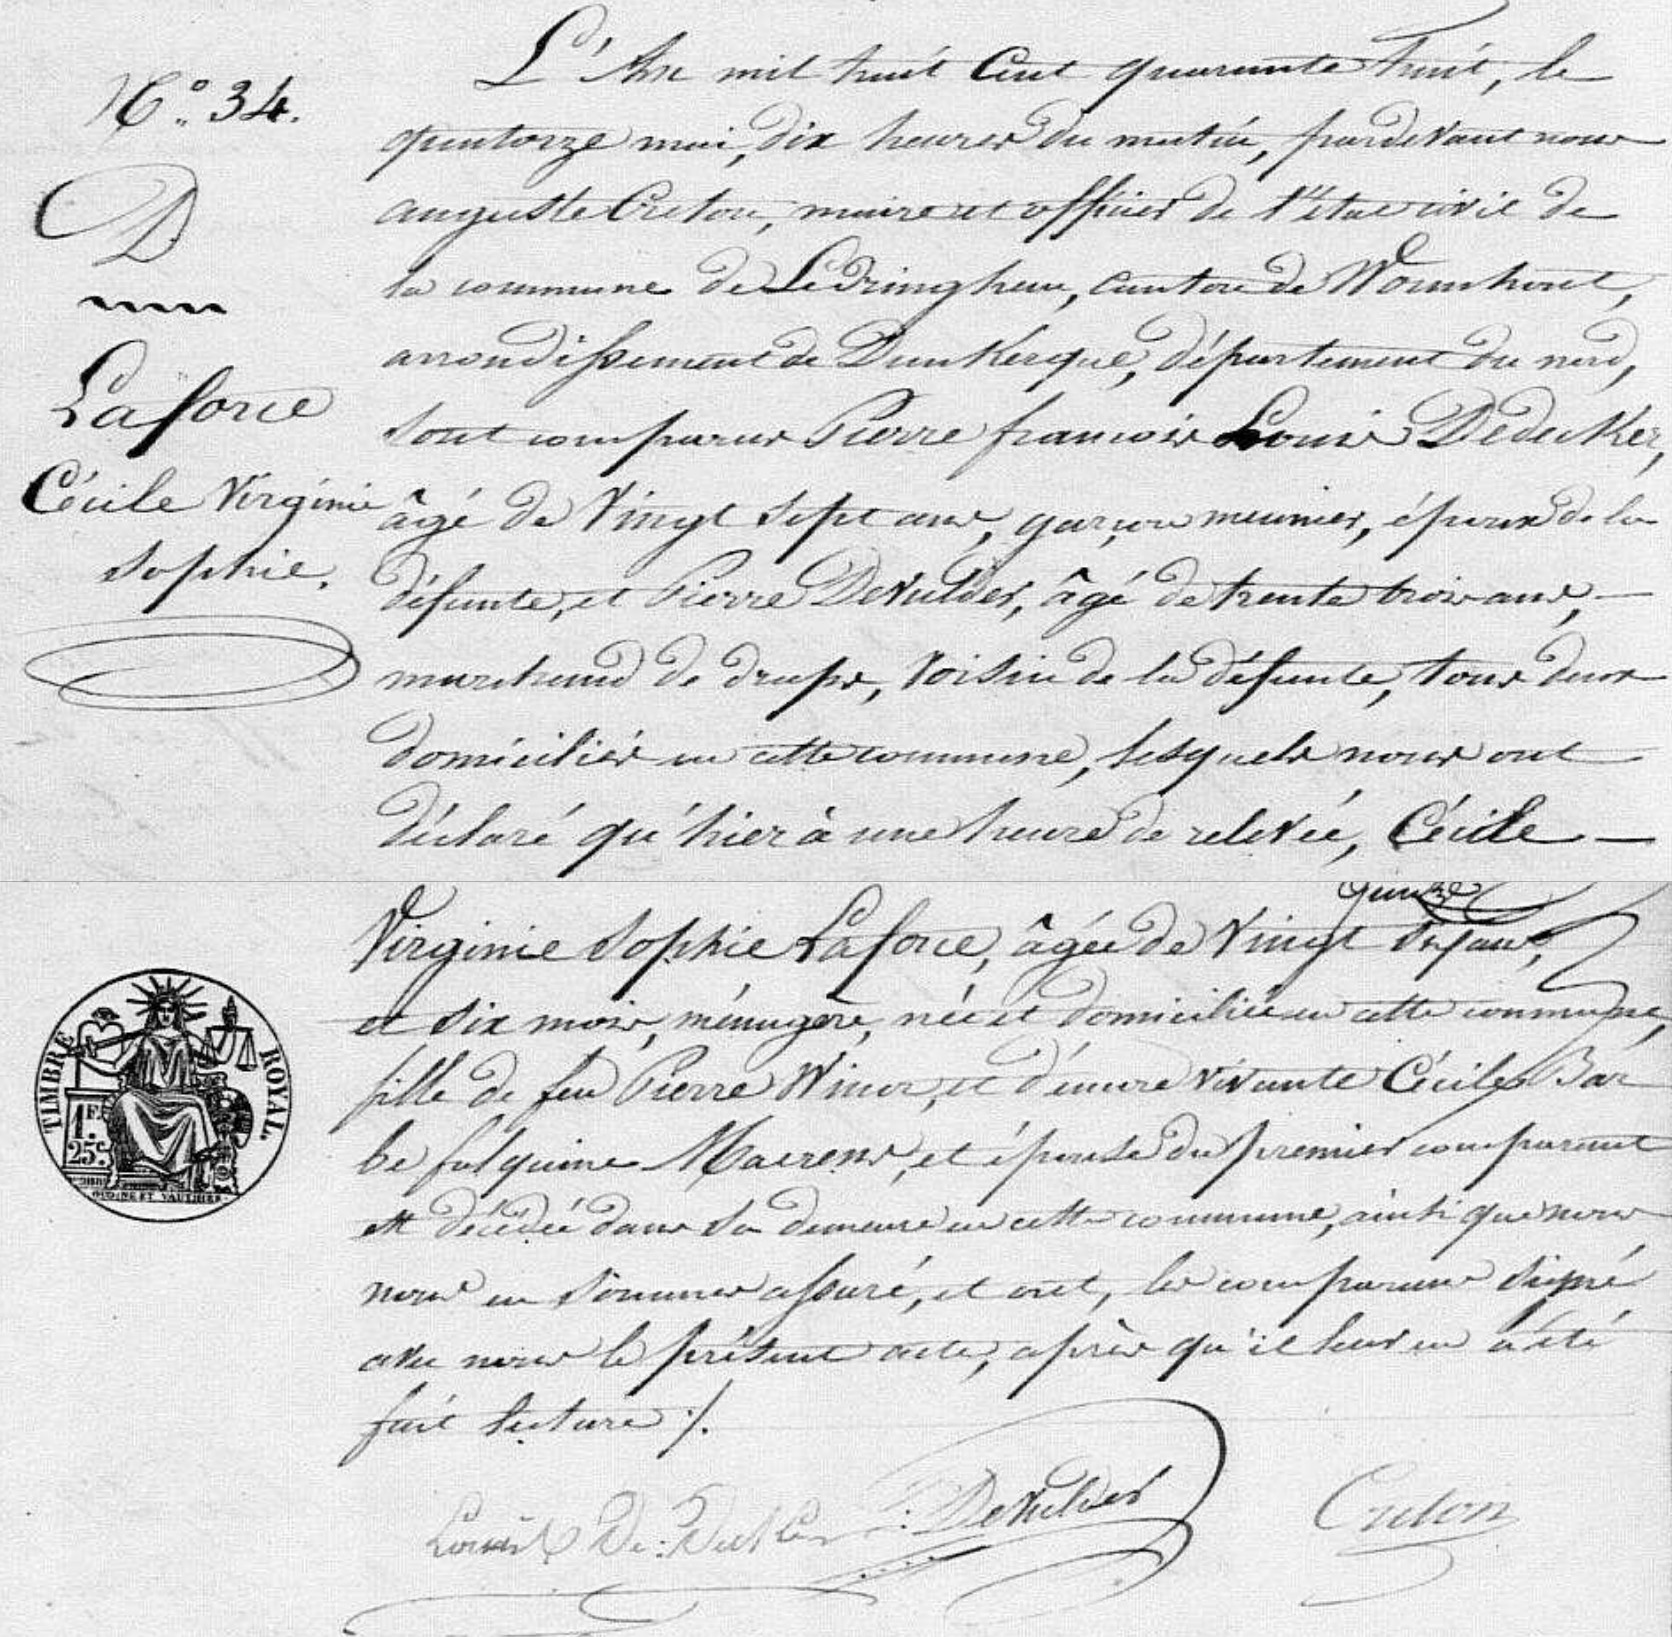 N.° 34.
D
Laforce
Cécile Virginie
Sophie.
L'An mil huit Cent quarante huit, le
quatorze mai, dix heures du matin, pardevant nous
auguste Creton, maire et officier de l'état civil de
la commune de Ledringhem, canton de Wormhout,
arrondissement de Dunkerque, département du nord,
sont comparus Pierre francois Louis Dedecker,
âgé de vingt sept ans, garçon meunier, époux de la
défunte, et Pierre Devulder, âgé de trente trois ans,
marchand de draps, voisin de la défunte, tous deux
domiciliés en cette commune, lesquels nous ont
déclaré qu'hier à une heure de relevée, Cécile
Virginie Sophie Laforce, âgée de vingt ans,
et six mois, ménagère, née et domiciliée en cette commune,
fille de feu Pierre Winoc, et d'encore vivante Cécile Bar
be fulquine Maerens, et épouse du premier comparant
est décédée dans sa demeure en cette commune, ainsi que nous
nous en sommes assuré, et ont, les comparans signé
avec nous le présent acte, après qu'il leur en a été
fait lecture ./.
TIMBRE ROYAL.
1F.
25c
Louis De:Decker
Devulder
Creton